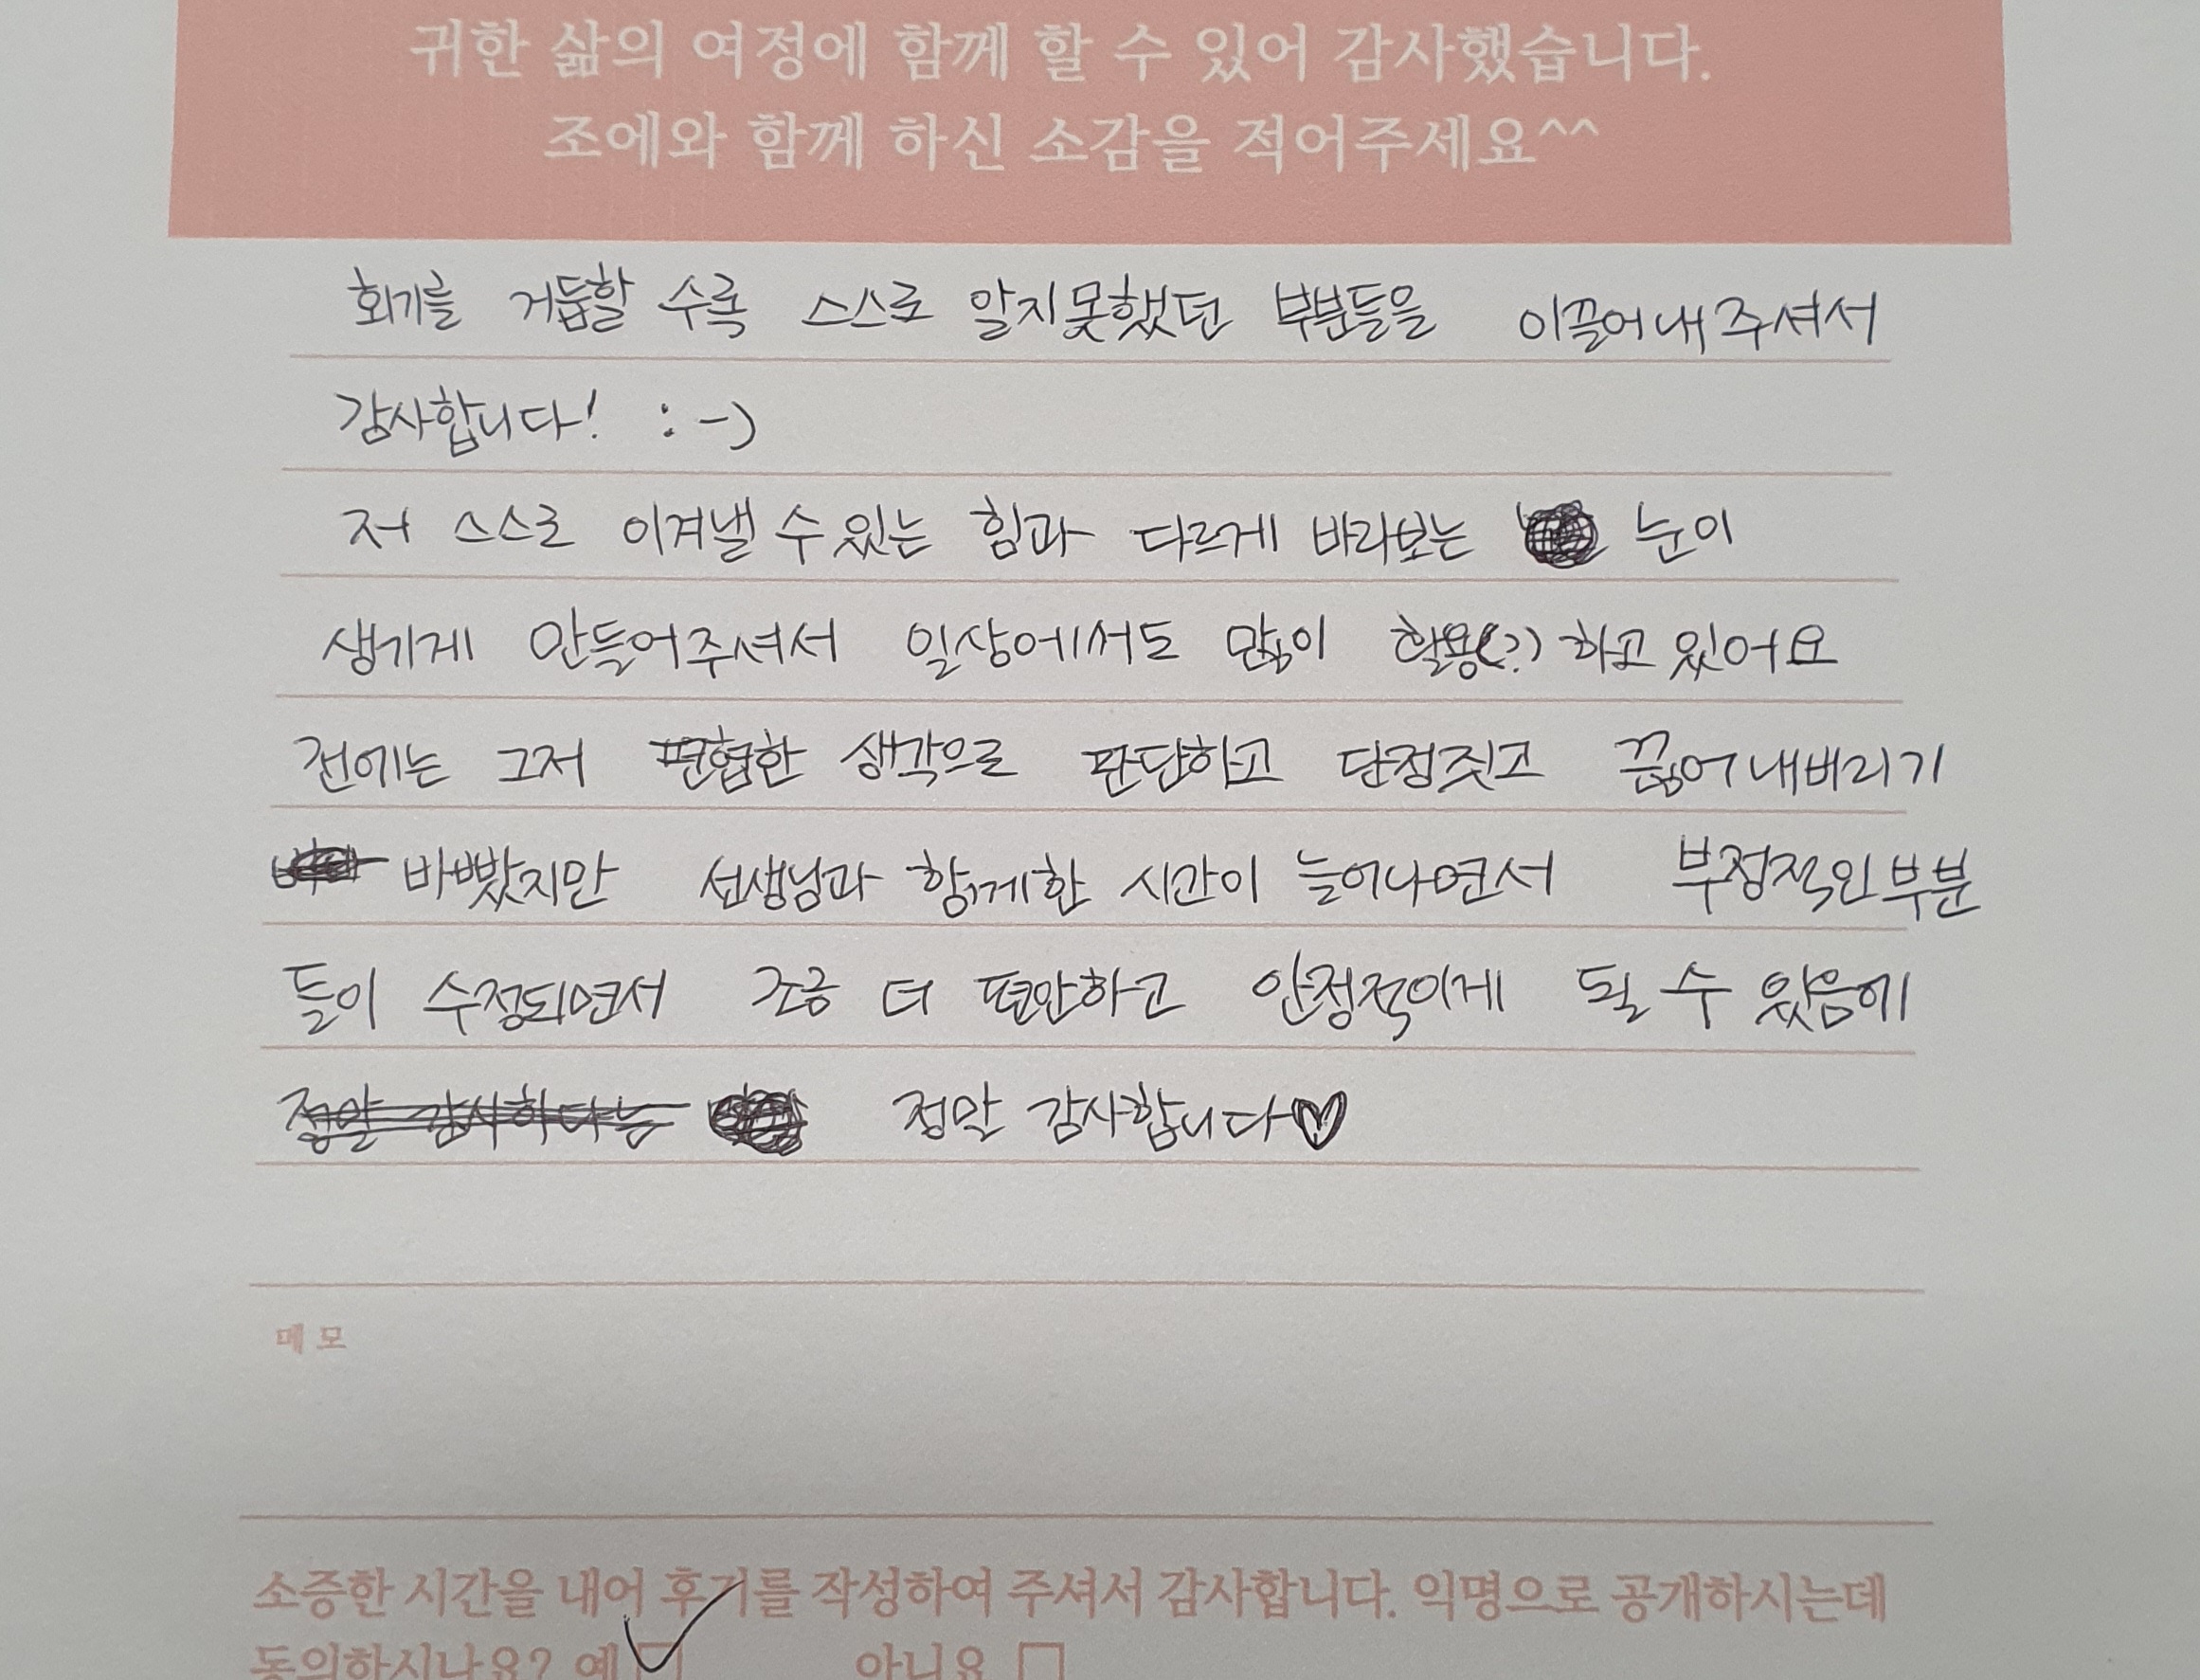 귀한 삶의 여정에 함께 할 수 있어 감사했습니다.
조에와 함께 하신 소감을 적어주세요^^
회기를 거듭할 수록 스스로 알지못했던 부분들을 이끌어내주셔서
감사합니다! :-)
저 스스로 이겨낼 수 있는 힘과 다르게 바라보는 눈이
생기게 만들어주셔서 일상에서도 많이 활용(?) 하고 있어요
전에는 그저 편협한 생각으로 판단하고 단정짓고 끊어내버리기
바빴지만 선생님과 함께한 시간이 늘어나면서 부정적인 부분
들이 수정되면서 조금 더 편안하고 안정적이게 될 수 있음에
정말 감사합니다♡
메모
소중한 시간을 내어 후기를 작성하여 주셔서 감사합니다. 익명으로 공개하시는데
동의하시나요? 예 아니요